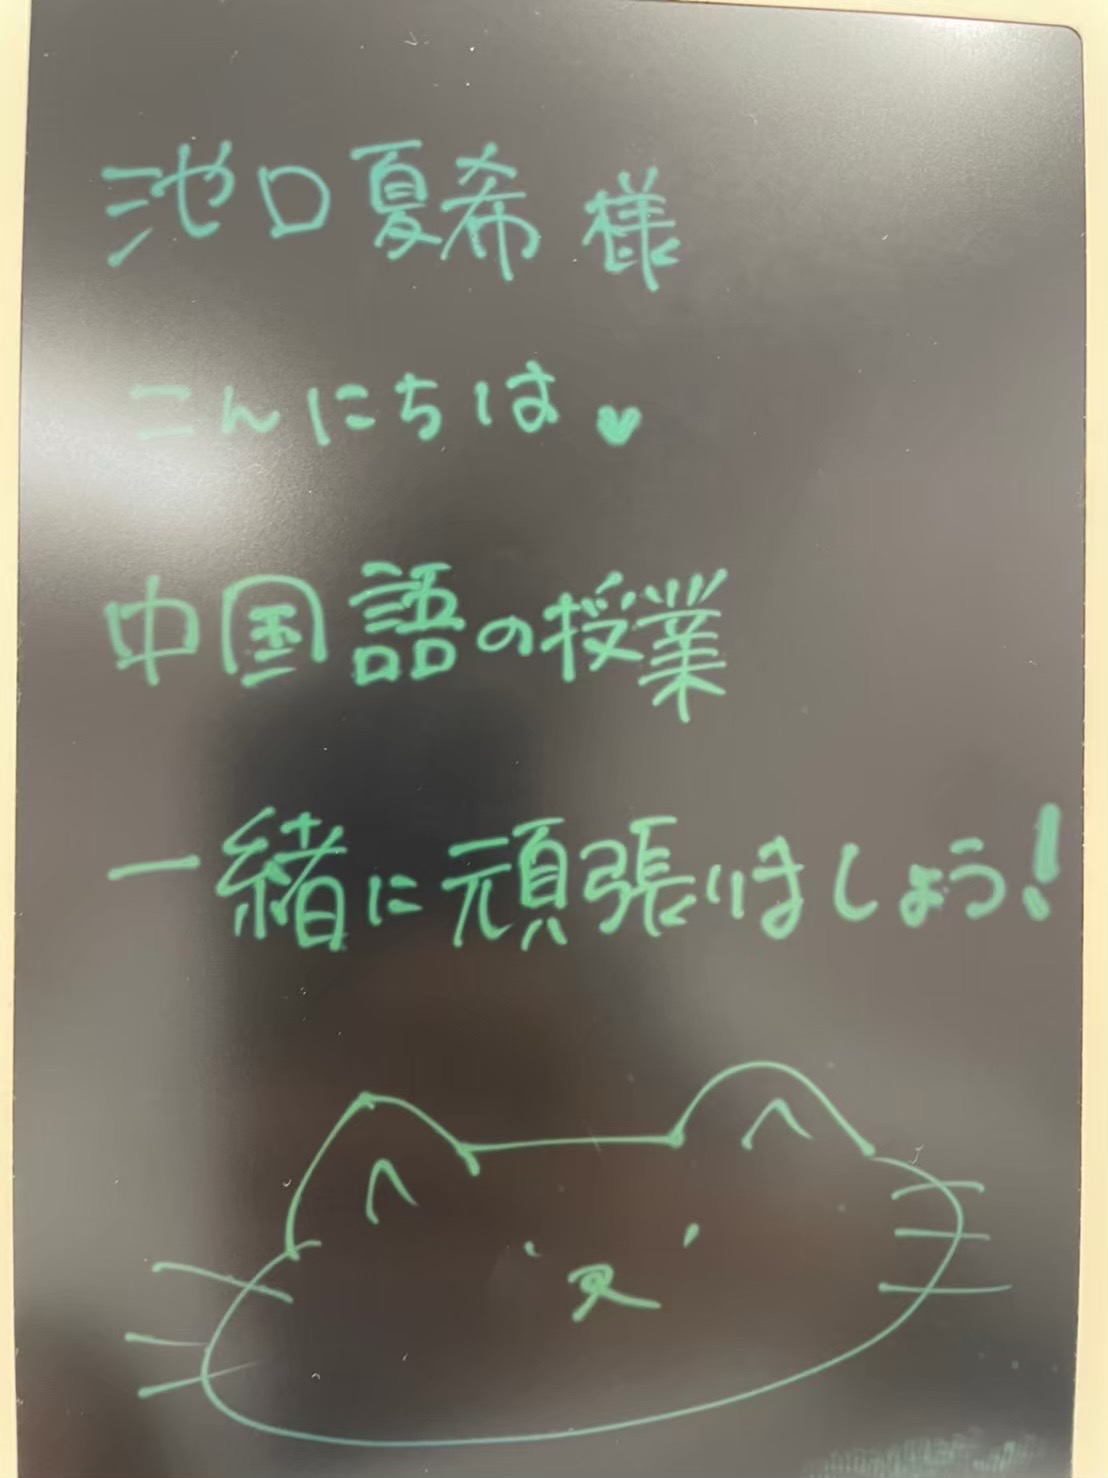 池口夏希 様
こんにちは♥
中国語の授業
一緒に頑張りましょう!